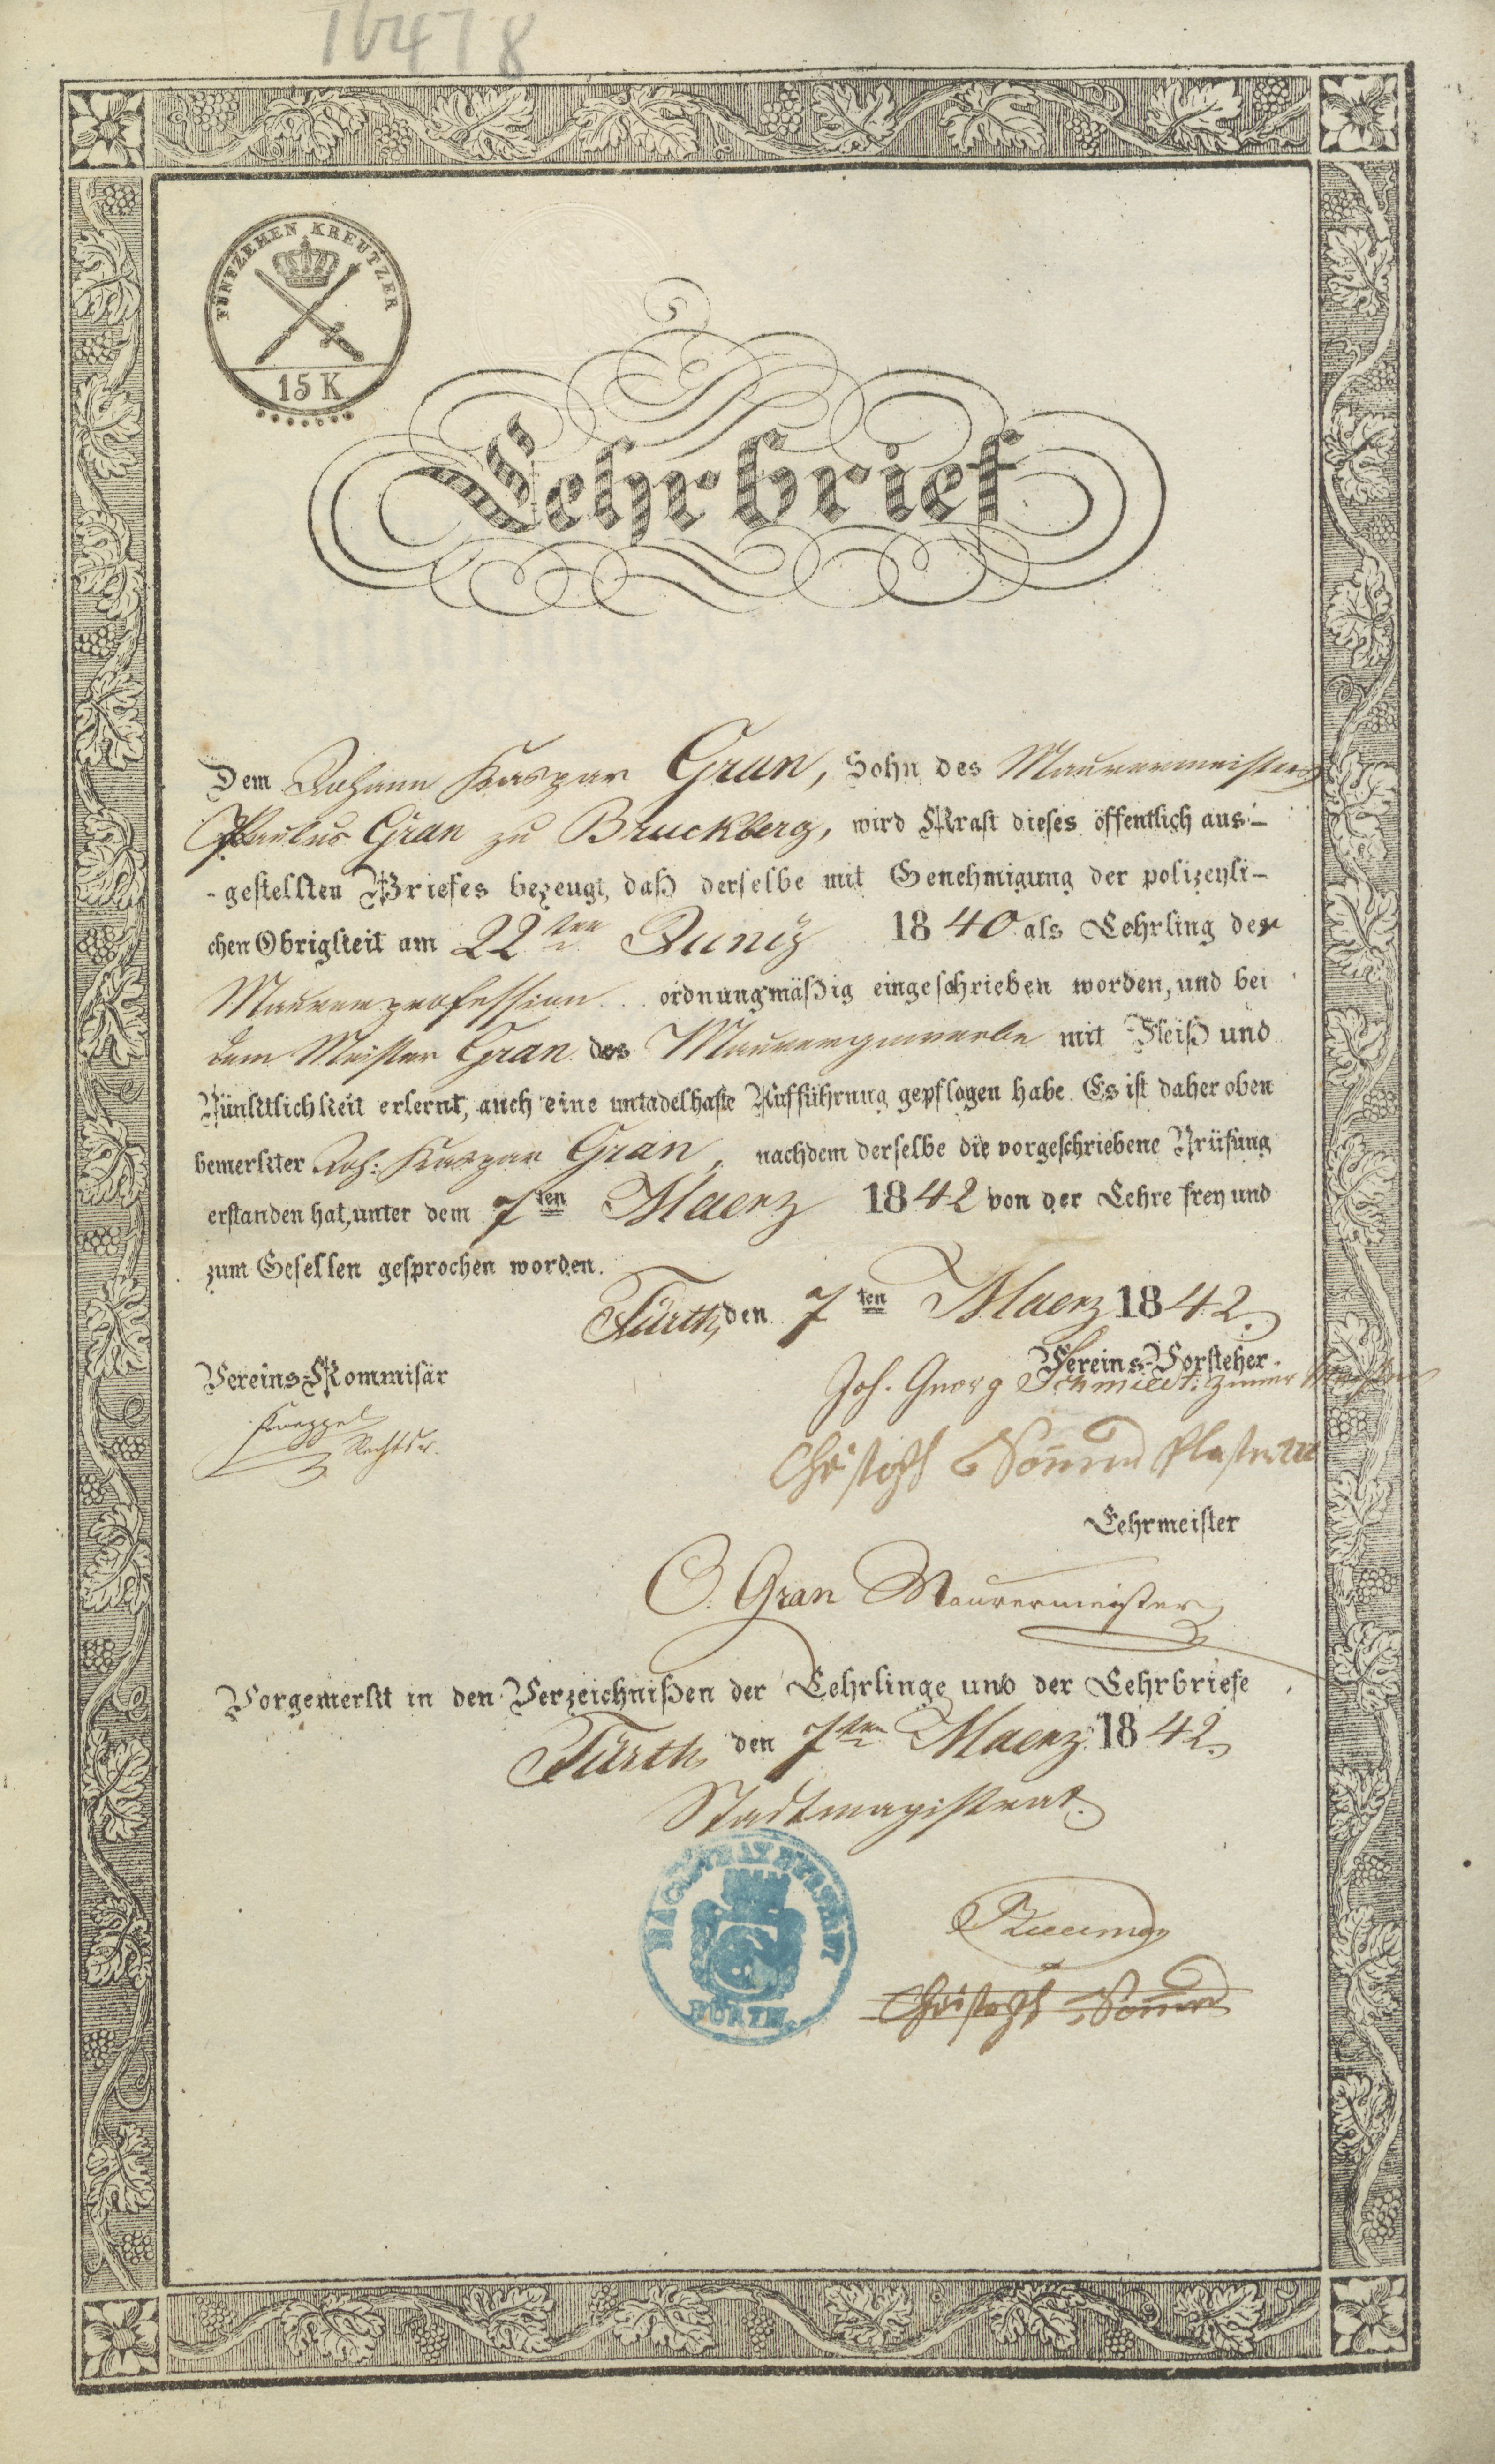 16478
FÜNFZEHEN KREUTZER
15 K
Lehrbrief
Dem Johann Kaspar Gran, Sohn des Maurermeisters
Paulus Gran zu Bruckberg, wird Kraft dieses öffentlich aus-
-gestellten Briefes bezeugt, daß derselbe mit Genehmigung der polizeyli-
chen Obrigkeit am 22ten Juny 1840 als Lehrling der
Maurerprofession ordnungmäßig eingeschrieben worden, und bei
dem Meister Gran das Maurergewerbe mit Fleiß und
Pünktlichkeit erlernt, auch eine untadelhafte Aufführung gepflogen habe. Es ist daher oben
bemerkter Joh: Kaspar Gran, nachdem derselbe die vorgeschriebene Prüfung
erstanden hat, unter dem 7ten Maerz 1842 von der Lehre frey und
zum Gesellen gesprochen worden.
Fürth, den 7ten Maerz 1842.
Vereins-Kommisär
Vereins-Vorsteher.
Joh. Georg Schmidt. Zimmer Meister
Rechtsr.
Christoph
Lehrmeister
Gran Maurermeister
Vorgemerkt in den Verzeichnißen der Lehrlinge und der Lehrbriefe
Fürth den 7ten Maerz 1842.
Stadtmagistrat.
MAGISTRAT DER STADT
FÜRTH.
Christoph